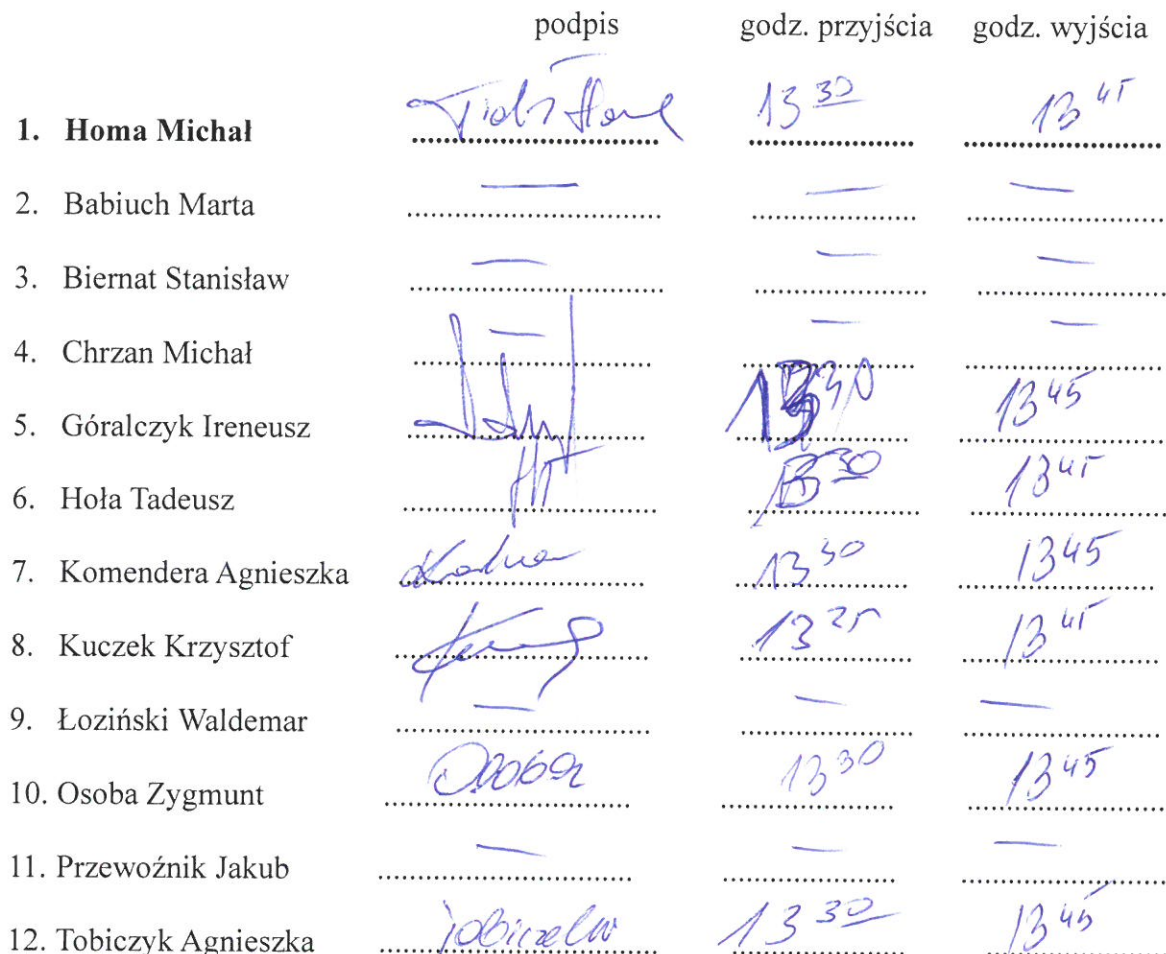 podpis godz. przyjścia godz. wyjścia
1. Homa Michał 13 30 13 45
2. Babiuch Marta — — —
3. Biernat Stanisław — — —
4. Chrzan Michał — — —
5. Góralczyk Ireneusz 13 30 13 45
6. Hoła Tadeusz 13 30 13 45
7. Komendera Agnieszka 13 30 13 45
8. Kuczek Krzysztof 13 25 13 45
9. Łoziński Waldemar — — —
10. Osoba Zygmunt Osoba 13 30 13 45
11. Przewoźnik Jakub — — —
12. Tobiczyk Agnieszka 13 30 13 45